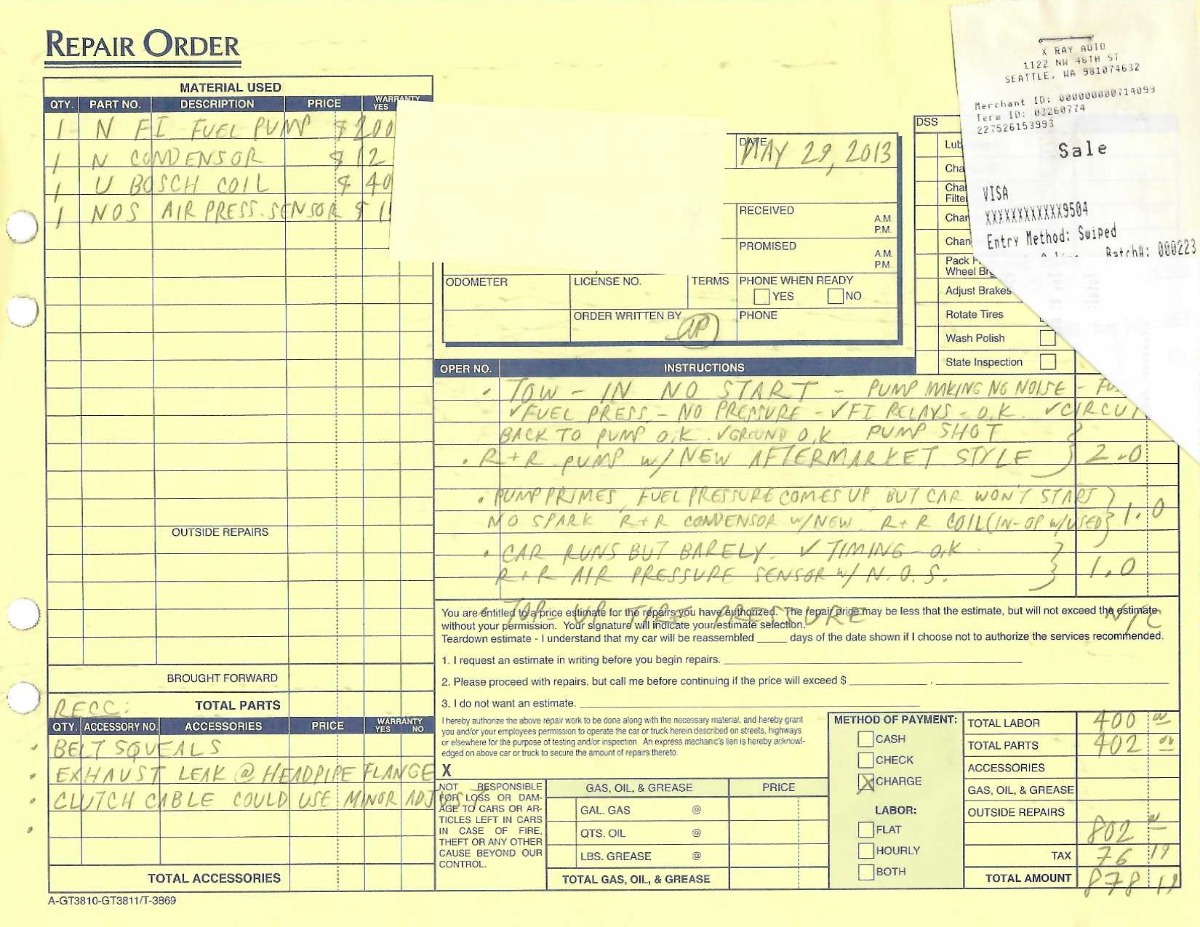 REPAIR ORDER
MATERIAL USED
QTY. PART NO. DESCRIPTION PRICE WARRANTY
YES
1 N FI FUEL PUMP $200
1 N CONDENSOR $12
1 U BOSCH COIL $40
1 NOS AIR PRESS. SENSOR $1
OUTSIDE REPAIRS
BROUGHT FORWARD
TOTAL PARTS
RECC:
QTY. ACCESSORY NO. ACCESSORIES PRICE WARRANTY
YES NO
BELT SQUEALS
EXHAUST LEAK @ HEADPIPE FLANGE
CLUTCH CABLE COULD USE MINOR
TOTAL ACCESSORIES
A-GT3810-GT3811/T-3869
DATE
MAY 29, 2013
RECEIVED
A.M.
P.M.
PROMISED
A.M.
P.M.
ODOMETER LICENSE NO. TERMS PHONE WHEN READY
YES NO
ORDER WRITTEN BY PHONE
DSS
Lub
Cha
Cha
Filter
Chan
Chan
Pack
Wheel
Adjust Brakes
Rotate Tires
Wash Polish
State Inspection
X RAY AUTO
1122 NW 46TH ST
SEATTLE, WA 981074632
Merchant ID: 000000000714099
Term ID: 03260774
227526153993
Sale
VISA
XXXXXXXXXXXX9504
Entry Method: Swiped
Batch#: 000223
OPER NO. INSTRUCTIONS
• TOW - IN NO START - PUMP MAKING NO NOISE -
✓FUEL PRESS - NO PRESSURE - ✓FI RELAYS - O.K. ✓CIRCUI
BACK TO PUMP O.K. ✓GROUND O.K. PUMP SHOT
• R+R PUMP W/ NEW AFTERMARKET STYLE } 2.0
• PUMP PRIMES, FUEL PRESSURE COMES UP BUT CAR WON'T START
NO SPARK R+R CONDENSOR W/NEW R+R COIL (IN-OP W/USED) } 1.0
• CAR RUNS BUT BARELY ✓ TIMING - O.K.
R+R AIR PRESSURE SENSOR W/ N.O.S. } 1.0
• TOP-UP TIRE PRESSURE N/C
You are entitled to a price estimate for the repairs you have authorized. The repair price may be less that the estimate, but will not exceed the estimate
without your permission. Your signature will indicate your estimate selection.
Teardown estimate - I understand that my car will be reassembled _____ days of the date shown if I choose not to authorize the services recommended.
1. I request an estimate in writing before you begin repairs.
2. Please proceed with repairs, but call me before continuing if the price will exceed $
3. I do not want an estimate.
I hereby authorize the above repair work to be done along with the necessary material, and hereby grant
you and/your employees permission to operate the car or truck herein described on streets, highways
or elsewhere for the purpose of testing and/or inspection. An express mechanic's lien is hereby acknowl-
edged on above car or truck to secure the amount of repairs thereto.
X
NOT RESPONSIBLE
FOR LOSS OR DAM-
AGE TO CARS OR AR-
TICLES LEFT IN CARS
IN CASE OF FIRE,
THEFT OR ANY OTHER
CAUSE BEYOND OUR
CONTROL.
GAS, OIL, & GREASE PRICE
GAL. GAS @
QTS. OIL @
LBS. GREASE @
TOTAL GAS, OIL, & GREASE
METHOD OF PAYMENT:
CASH
CHECK
CHARGE
LABOR:
FLAT
HOURLY
BOTH
TOTAL LABOR 400 00
TOTAL PARTS 402 00
ACCESSORIES
GAS, OIL, & GREASE
OUTSIDE REPAIRS
802
TAX 76 19
TOTAL AMOUNT 878 19